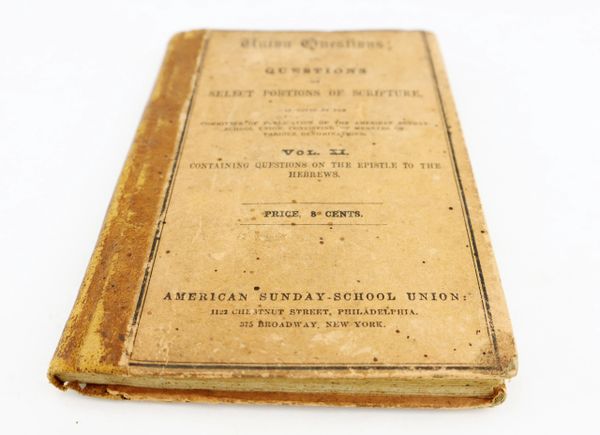 Union Questions;
QUESTIONS
ON
SELECT PORTIONS OF SCRIPTURE,
BY THE
COMMITTEE OF PUBLICATION OF THE AMERICAN SUNDAY-
SCHOOL UNION, CONSISTING OF MEMBERS OF
VARIOUS DENOMINATIONS.
VOL. XI.
CONTAINING QUESTIONS ON THE EPISTLE TO THE
HEBREWS.
PRICE, 8 CENTS.
AMERICAN SUNDAY-SCHOOL UNION:
1122 CHESTNUT STREET, PHILADELPHIA.
375 BROADWAY, NEW YORK.